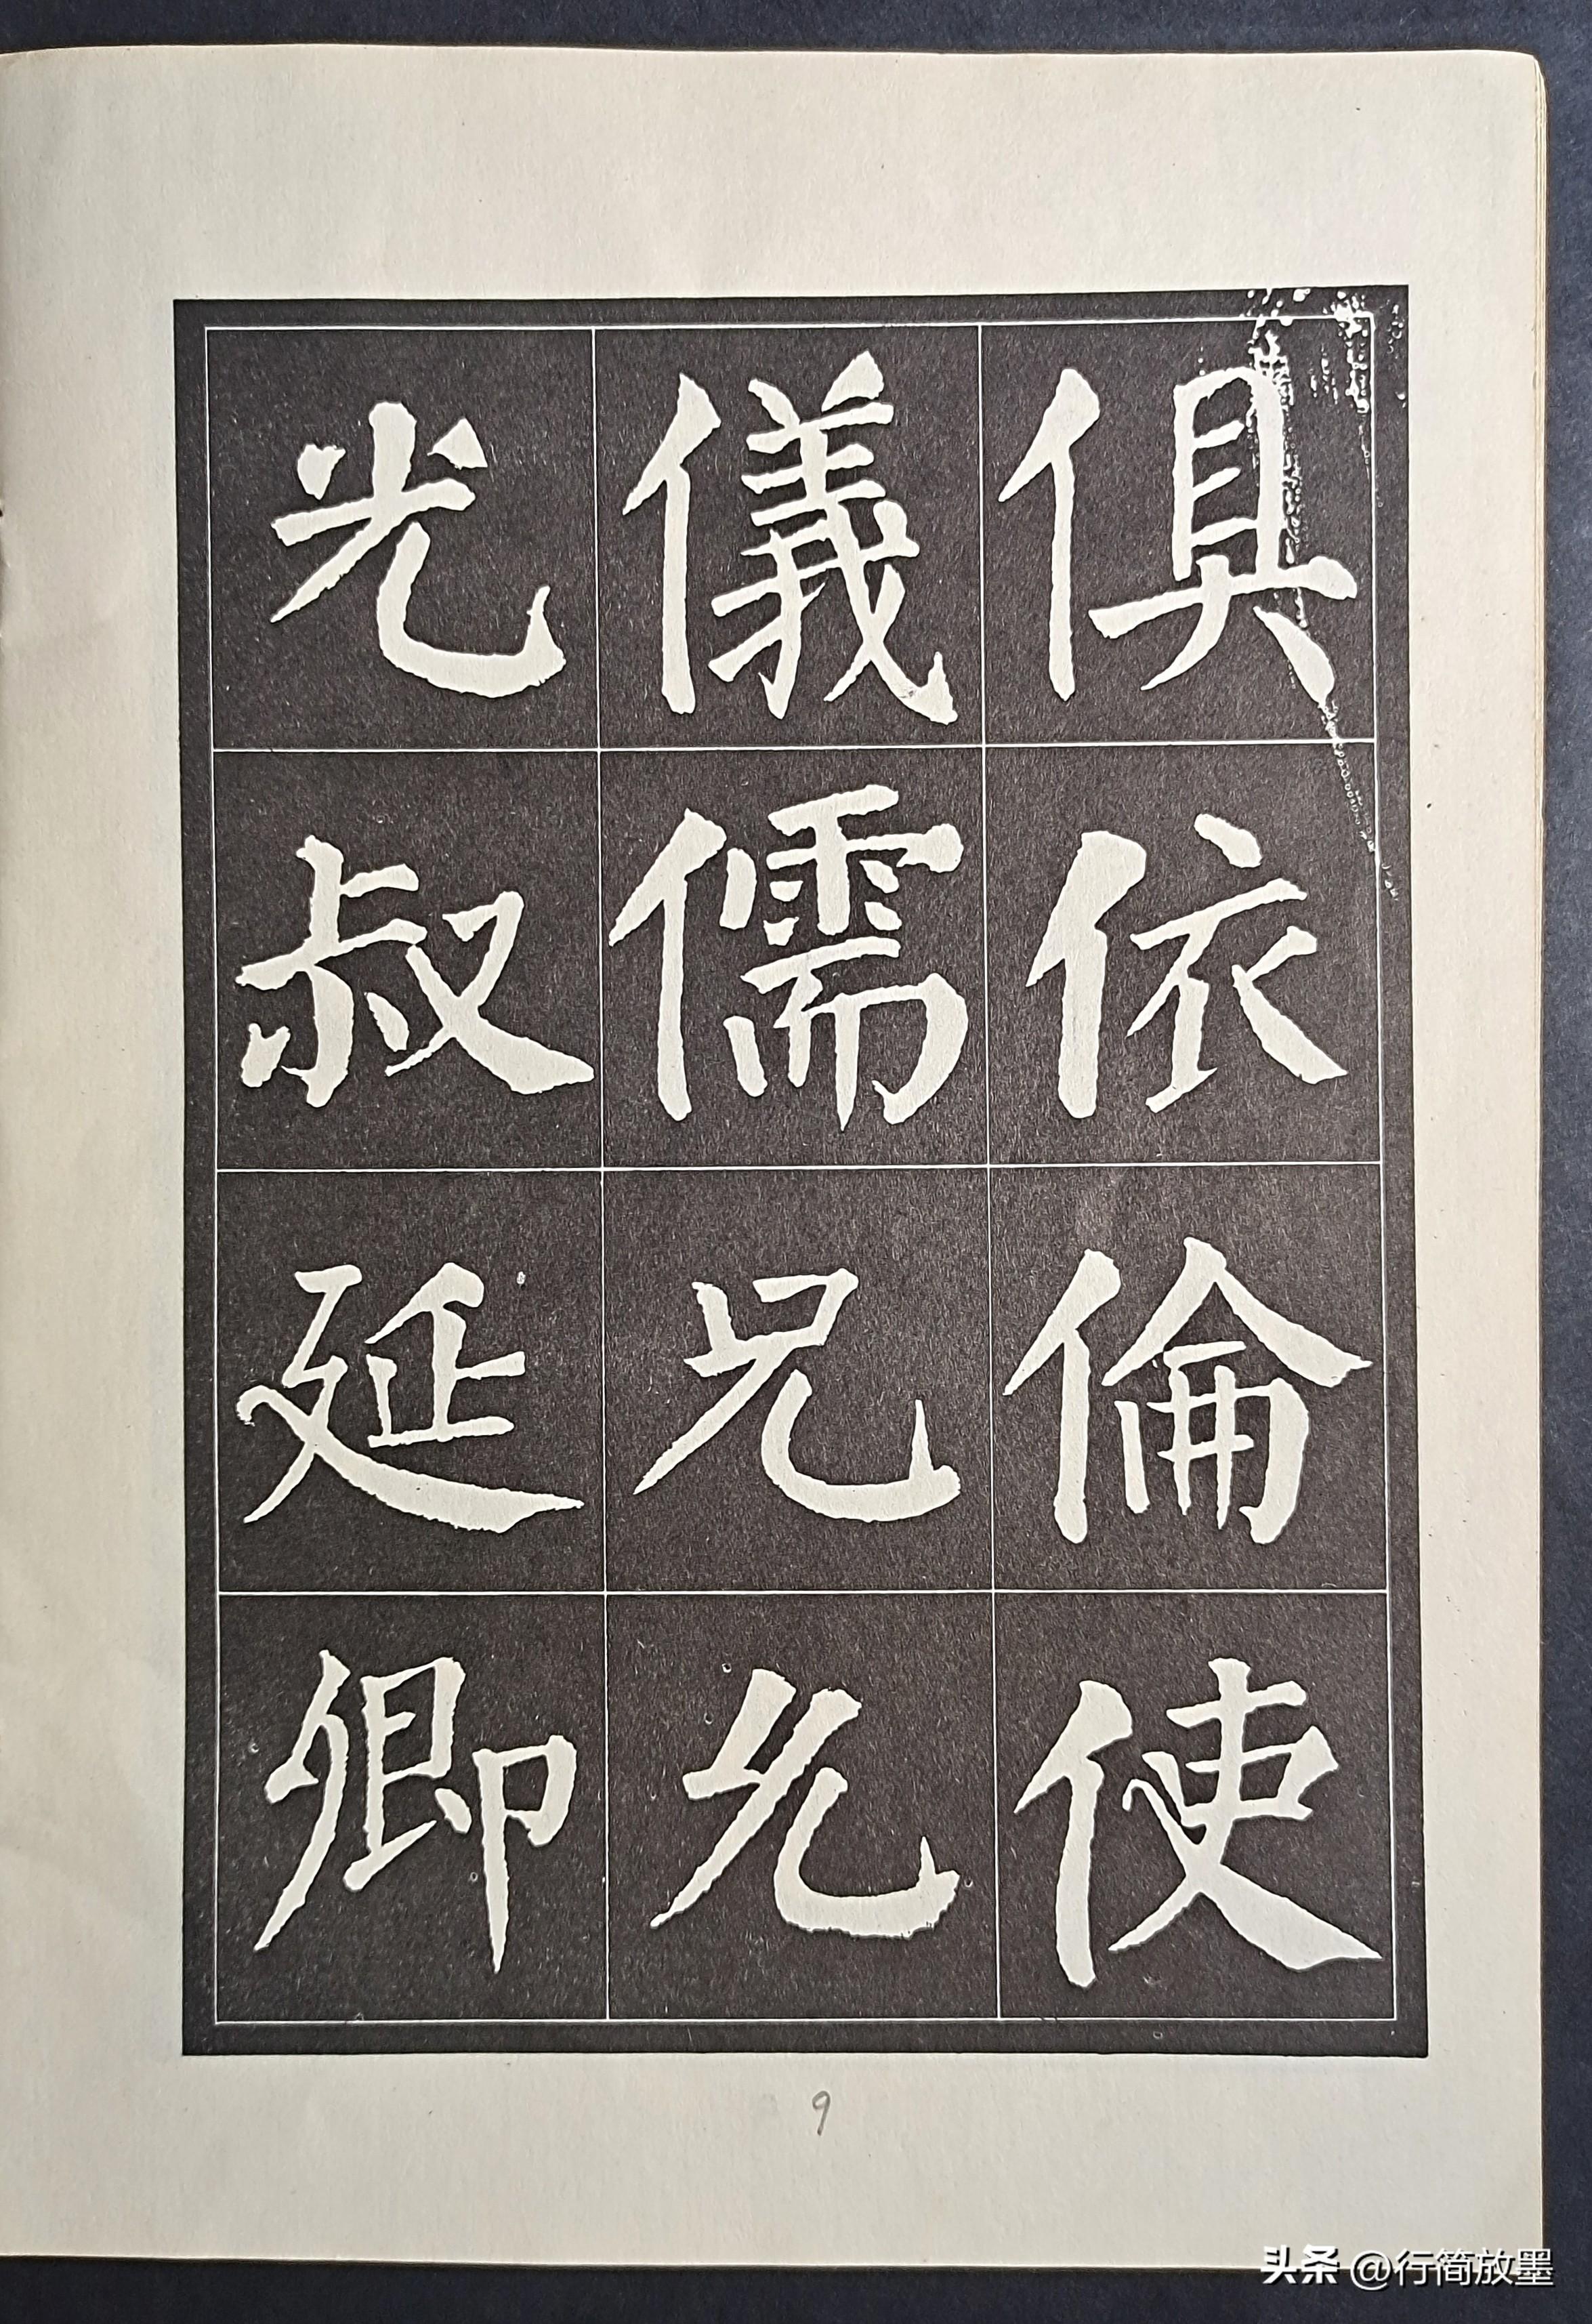 俱依倫使
儀儒兄允
光叔延卿
9
头条 @行简放墨